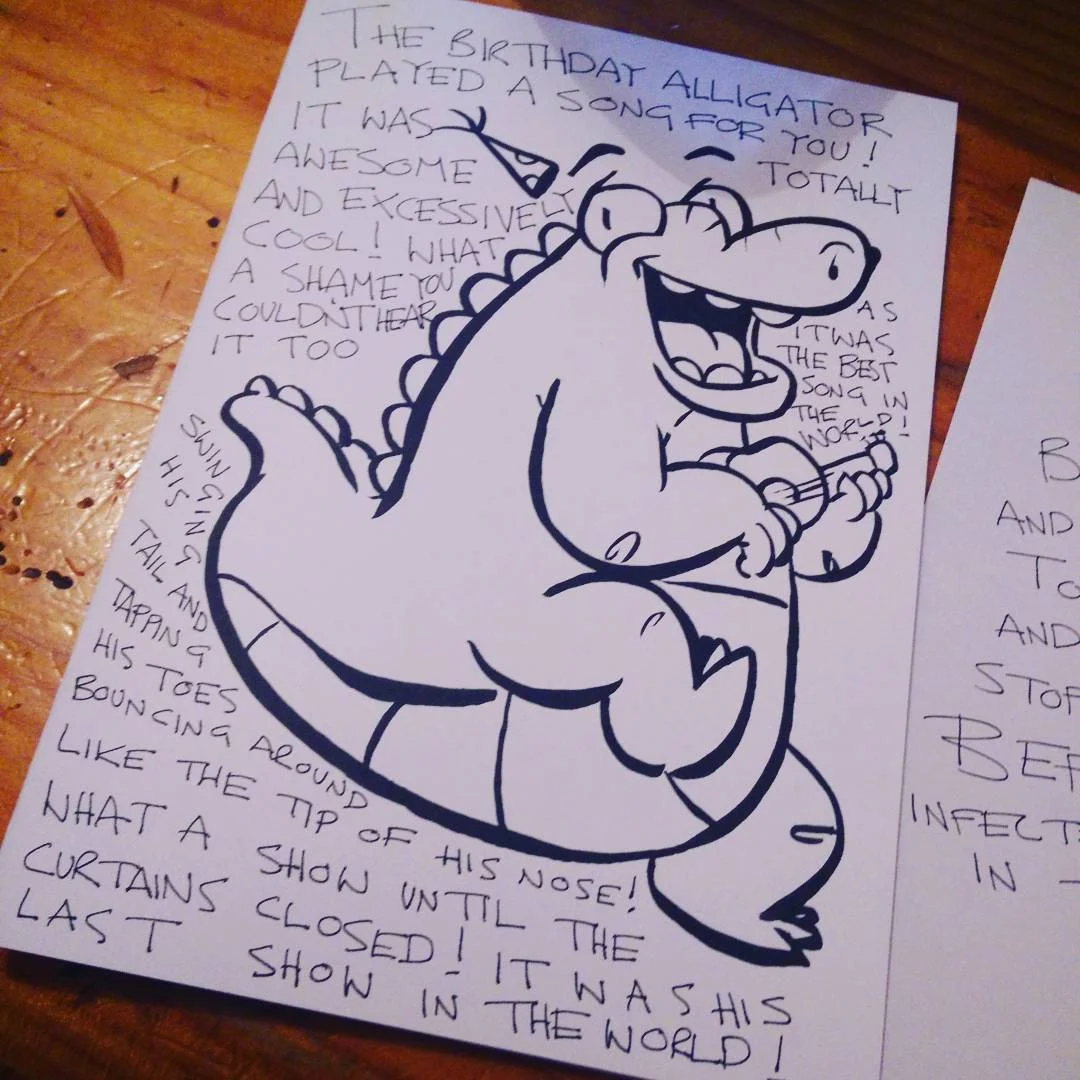 THE BIRTHDAY ALLIGATOR
PLAYED A SONG FOR YOU!
IT WAS TOTALLY
AWESOME
AND EXCESSIVELY
COOL! WHAT
A SHAME YOU
COULDN'T HEAR
IT TOO
AS
IT WAS
THE BEST
SONG IN
THE
WORLD!
SWINGING
HIS
TAIL AND
TAPPING
HIS TOES
BOUNCING AROUND
LIKE THE TIP OF HIS NOSE!
WHAT A SHOW UNTIL THE
CURTAINS CLOSED! IT WAS HIS
LAST SHOW IN THE WORLD!
AND
AND
IN